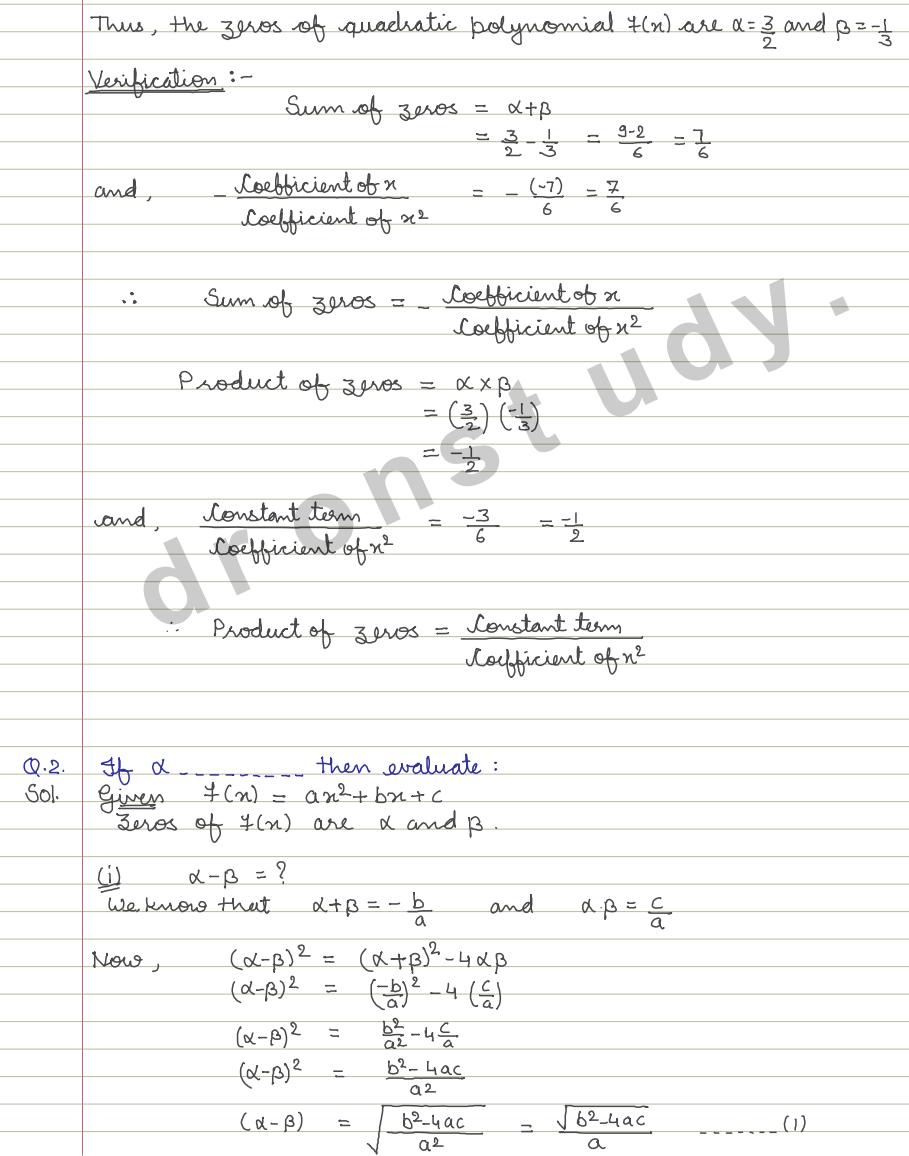 Thus, the zeros of quadratic polynomial f(x) are α = 3/2 and β = -1/3
Verification :-
Sum of zeros = α+β
= 3/2 - 1/3 = 9-2/6 = 7/6
and, - Coefficient of x / Coefficient of x² = - (-7)/6 = 7/6
∴ Sum of zeros = - Coefficient of x / Coefficient of x²
Product of zeros = α × β
= (3/2) (-1/3)
= -1/2
and, Constant term / Coefficient of x² = -3/6 = -1/2
∴ Product of zeros = Constant term / Coefficient of x²
Q.2. If α ---------- then evaluate :
Sol. Given f(x) = ax² + bx + c
Zeros of f(x) are α and β.
(i) α-β = ?
We know that α+β = - b/a and α·β = c/a
Now, (α-β)² = (α+β)² - 4αβ
(α-β)² = (-b/a)² - 4 (c/a)
(α-β)² = b²/a² - 4 c/a
(α-β)² = b² - 4ac / a²
(α-β) = √(b²-4ac / a²) = √(b²-4ac) / a -------(1)
dronstudy.